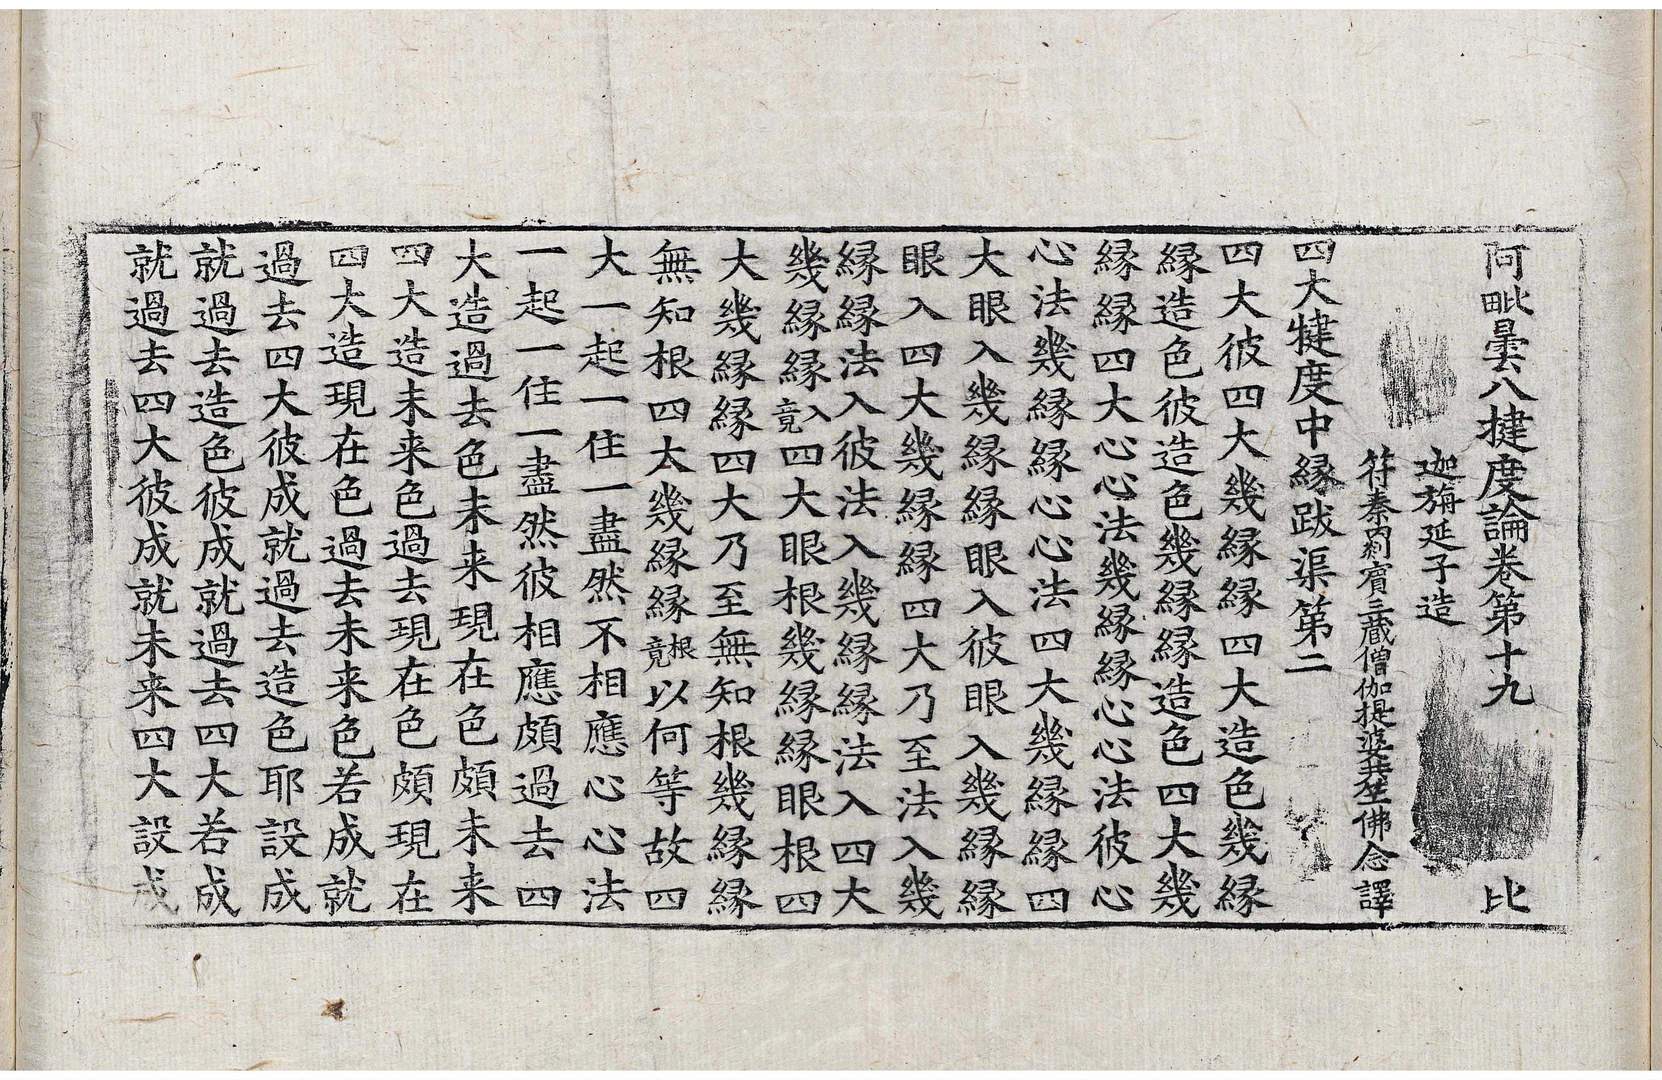 阿毗曇八揵度論卷第十九 比
迦旃延子造
符秦罽賓三藏僧伽提婆共竺佛念譯
四大犍度中縁跋渠第二
四大彼四大幾縁縁四大造色幾縁
縁造色彼造色幾縁縁造色四大幾
縁縁四大心心法幾縁縁心心法彼心
心法幾縁縁心心法四大幾縁縁四
大眼入幾縁縁眼入彼眼入幾縁縁
眼入四大幾縁縁四大乃至法入幾
縁縁法入彼法入幾縁縁法入四大
幾縁縁入竟四大眼根幾縁縁眼根四
大幾縁縁四大乃至無知根幾縁縁
無知根四大幾縁縁根竟以何等故四
大一起一住一盡然不相應心心法
一起一住一盡然彼相應頗過去四
大造過去色未来現在色頗未来
四大造未来色過去現在色頗現在
四大造現在色過去未来色若成就
過去四大彼成就過去造色耶設成
就過去造色彼成就過去四大若成
就過去四大彼成就未来四大設成